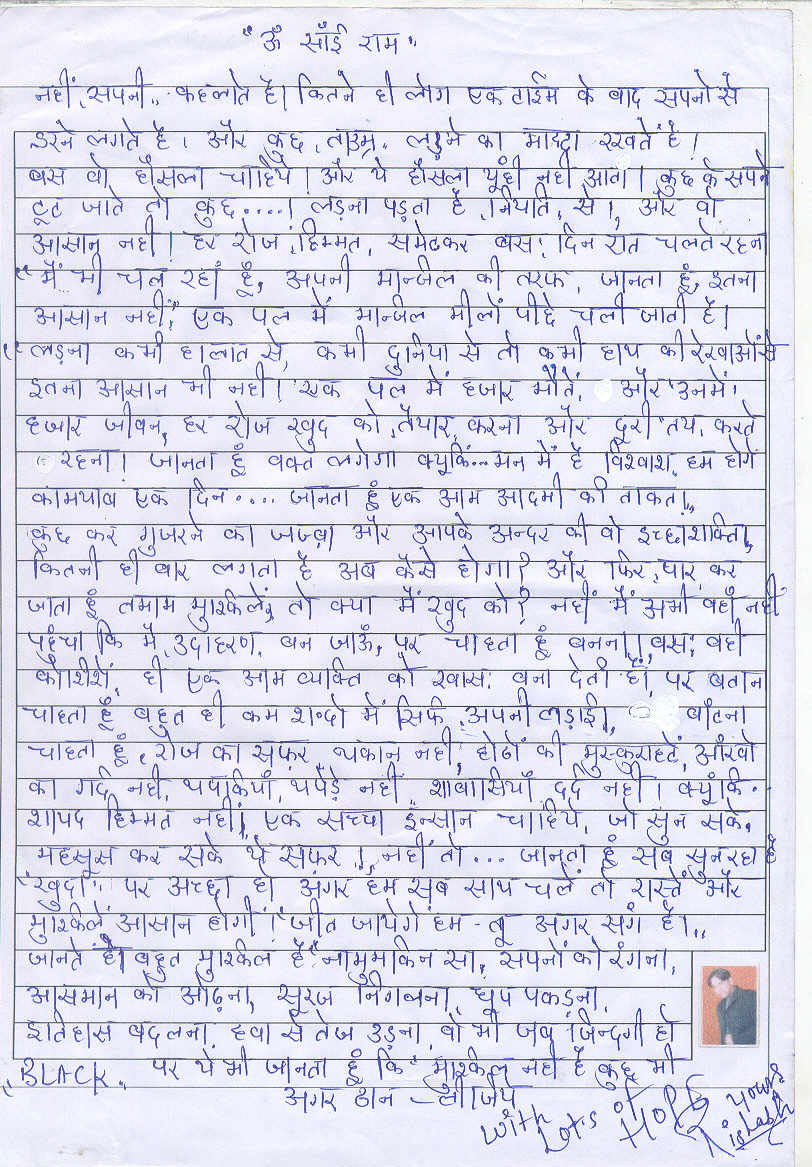 "ॐ साँई राम"
नहीं, सपनी,, कहलाते है। कितने ही लोग एक टाईम के बाद सपनो से
डरने लगते है। और कुछ, ताउम्र, लड़ने का माद्दा रखते है!
बस वो हौसला चाहिये! और ये हौसला यूंही नही आता। कुछ के सपने
टूट जाते तो कुछ....! लड़ना पड़ता है, नियति, से!, और वो
आसान नही! हर रोज, हिम्मत, समेटकर बस! दिन रात चलते रहना
"मैं भी चल रहा हूँ, अपनी मान्जिल की तरफ, जानता हूं, इतना
आसान नही," एक पल में मान्जिल मीलों पीछे चली जाती है।
"लड़ना कभी हालात से, कभी दुनिया से तो कभी हाथ की रेखाओं से
इतना आसान भी नही! एक पल में हजार मौतें, और उनमें!
हजार जीवन, हर रोज खुद को, तैयार, करना और दूरी तय, करते
रहना! जानता हूं वक्त लगेगा क्यूकिं... मन में है विश्वाश, हम होगें
कामयाब एक दिन.... जानता हूं एक आम आदमी की ताकत!,,
कुछ कर गुजरने का जज्बा और आपके अन्दर की वो इच्छाशक्ति,,
कितनी ही बार लगता है अब कैसे होगा? और फिर, पार, कर
जाता हूं तमाम मुश्किलें, तो क्या मैं खुद को? नहीं मैं अभी वहाँ नही
पहुंचा कि मै, उदाहरण, बन जाऊँ, पर चाहता हूं बनना!, बस! वही
कोशिशें, ही एक आम व्यक्ति को खास! बना देती है, पर बताना
चाहता हूँ बहुत ही कम शब्दो में सिर्फ, अपनी लड़ाई, बाँटना
चाहता हूं, रोज का सफर, थकान नही, होठों की मुस्कुराहटें, आँखो
का गर्द नही, थपकियाँ, थपेड़े नही, शाबासियाँ, दर्द नही। क्यूंकि
शायद हिम्मत नही!, एक सच्चा इन्सान चाहिये, जो सुन सके,
महसूस कर सके ये सफर!, नही तो... जानता हूं सब सुन रहा है
"खुदा"! पर अच्छा हो अगर हम सब साथ चलें तो रास्ते और
मुश्किलें आसान होगी! "जीत जायेगें हम - तू अगर संग है।,,
जानते है! बहुत मुश्किल है" नामुमकिन सा, सपनों को रंगना,
आसमान को ओढ़ना, सूरज निगलना, धूप पकड़ना,
इतिहास बदलना, हवा से तेज उड़ना, वो भी जब जिन्दगी हो
"BLACK,, पर ये भी जानता हूं कि मुश्किल नही है कुछ भी
अगर ठान - लीजिये
with Lot's of Hope
yours